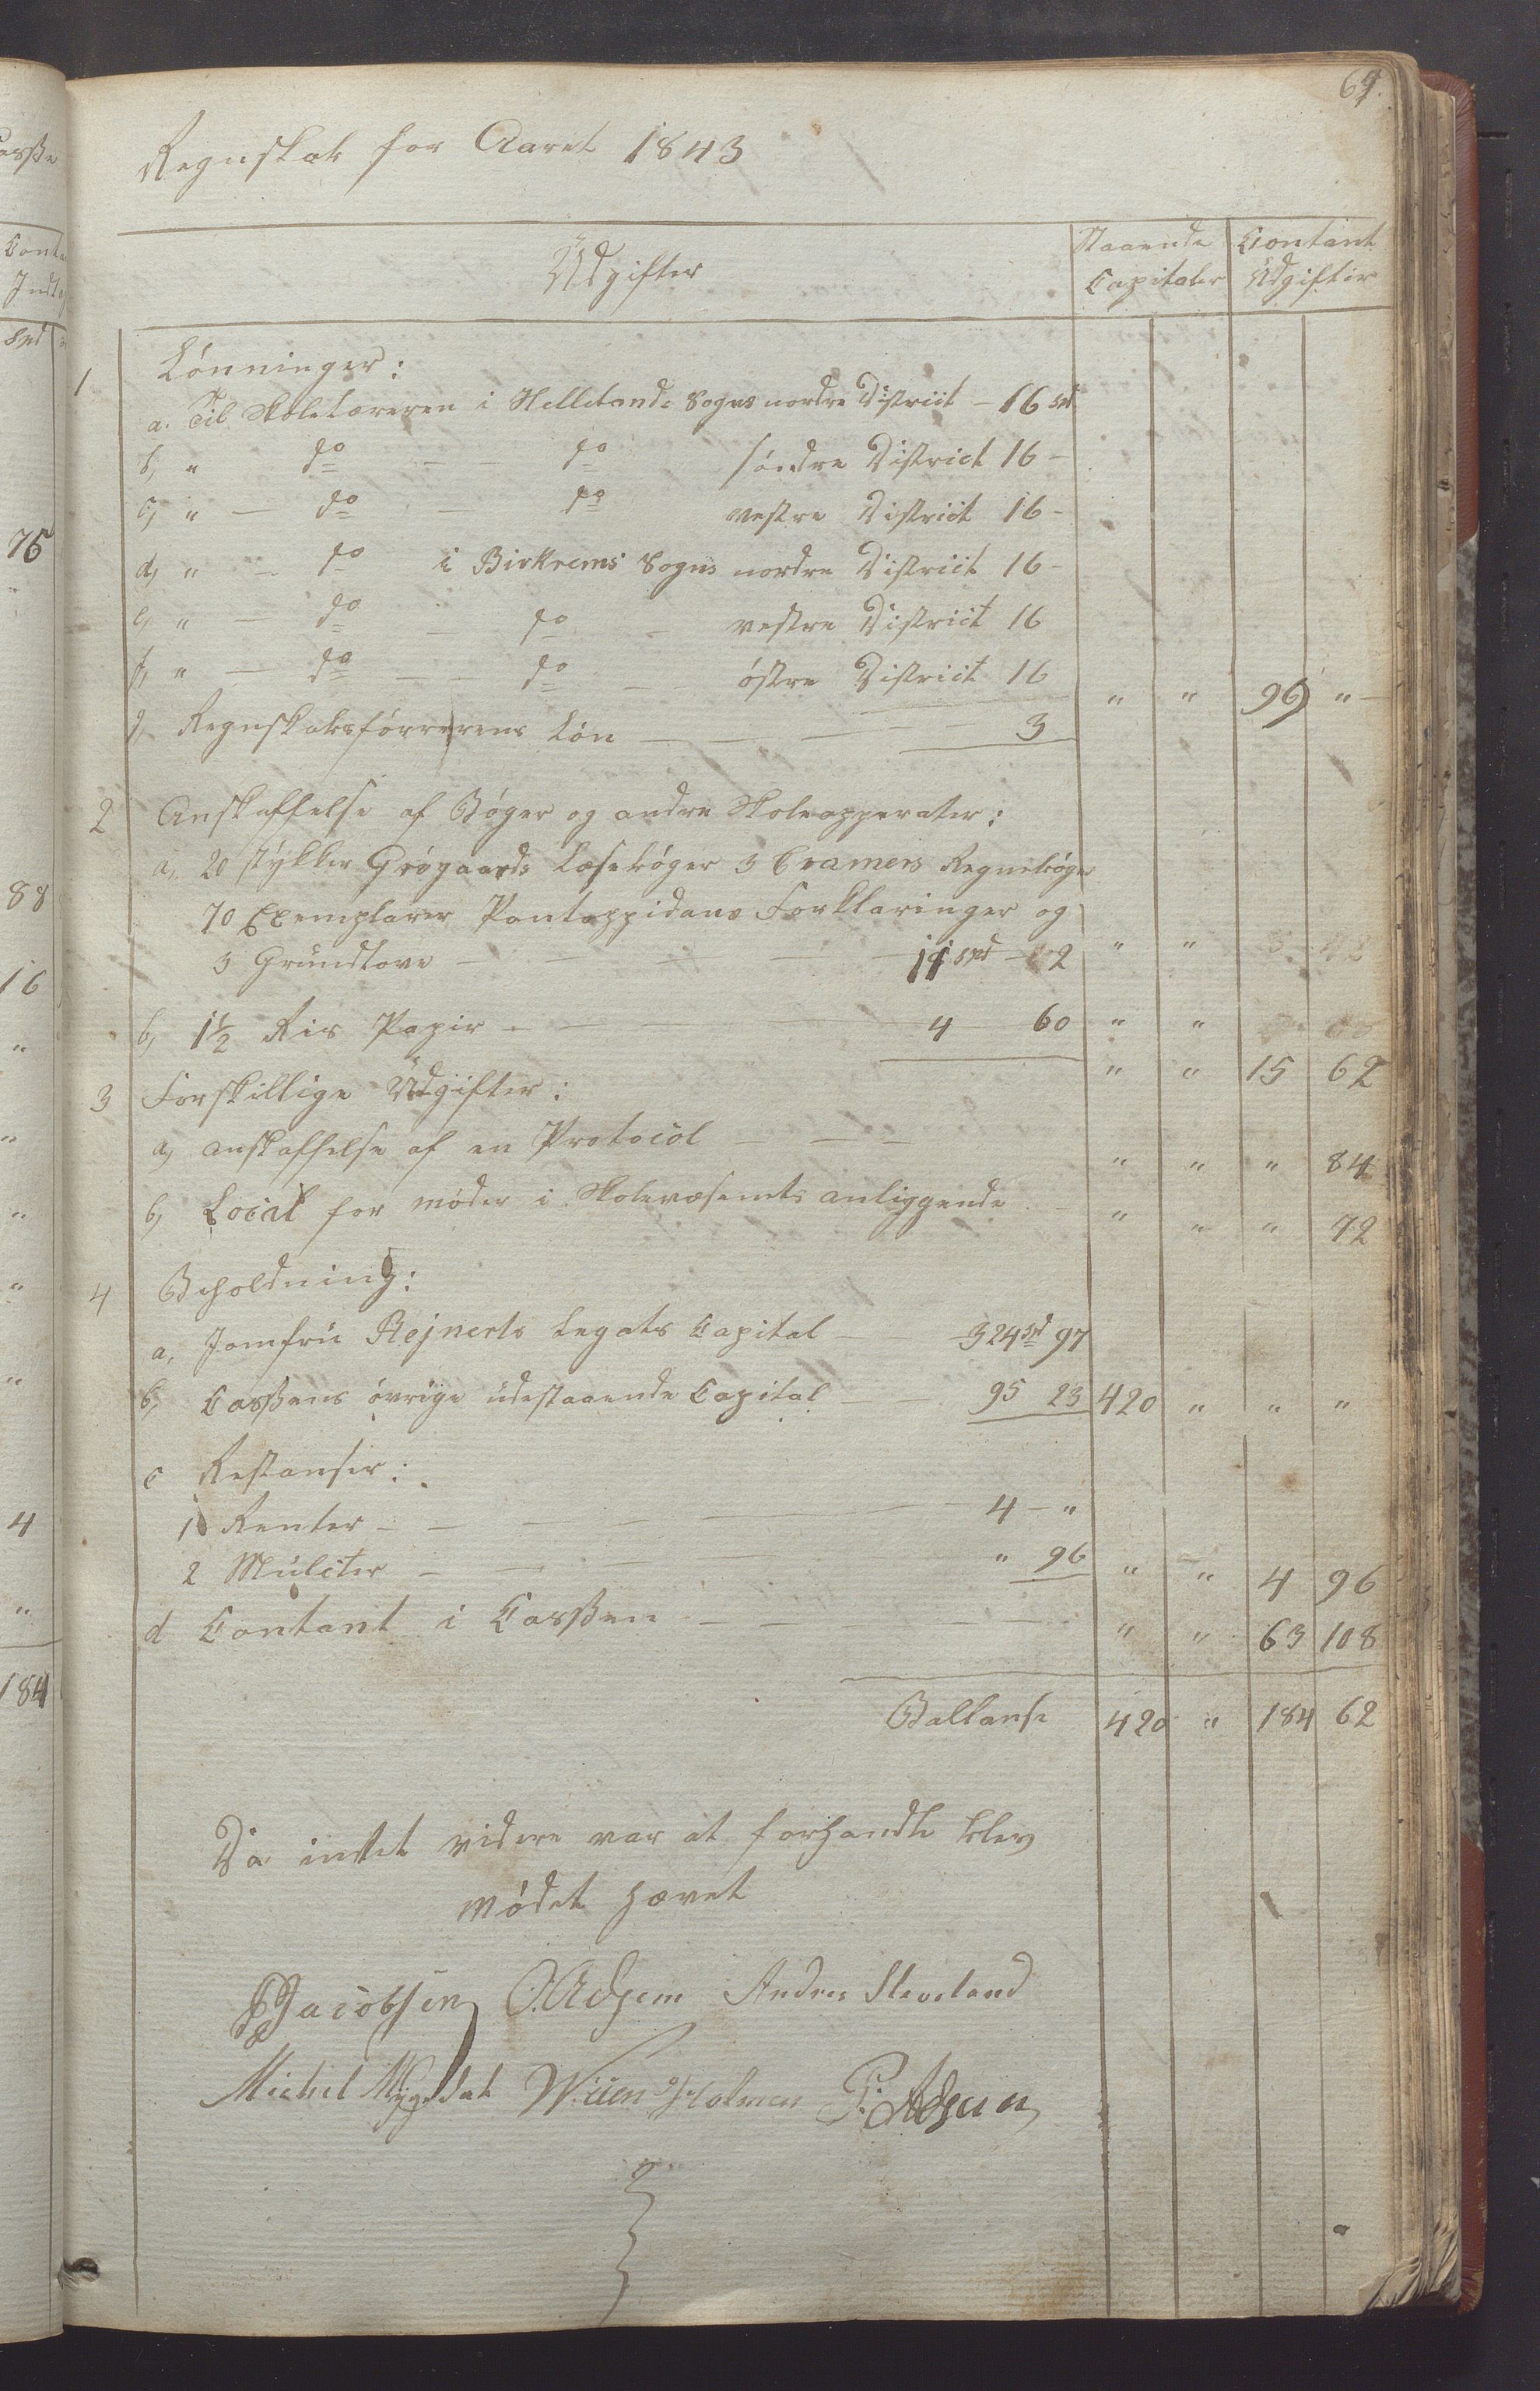 69.
Regnskab for Aaret 1843
Udgifter
Staaende Capitaler
Contant Udgifter
1 Lønninger:
a. Til Skolelæreren i Hellelands Sogns nordre District – 16 spd
b, " do – – do søndre District 16 –
c, " – do – do vestre District 16 –
d, " – do i Birkrems Sogns nordre District 16 –
e, " – do – do – vestre District 16
f, " – do – – do – østre District 16
g, Regnskabsførrerens Løn – – – 3 " " 99 "
2 Anskaffelse af Bøger og andre Skoleapperater:
a, 20 stykker Grøgaards Læsebøger 3 Cramers Regnebøger
70 Exemplarer Pontoppidans Forklaringer og
3 Grundlove – – – – – 11 spd – 2 " "
b, 1½ Ris Papir – – – 4 60 " "
" " 15 62
3 Forskillige Udgifter:
a, anskaffelse af en Protocol – – – " " " 84
b, Local for møder i Skolevæsenets anliggende – " " " 72
4 Beholdning:
a, Jomfru Rejnerts Legats Capital – 324 spd 97
b, Cassens øvrige udestaaende Capital – 95 23 420 " " "
c Restanser:
1 Renter – – – – – – 4 – "
2 Mulcter – – – – – " 96 " " 4 96
d Contant i Cassen – – – – " " 63 108
Ballanse 420 " 184 62
Da intet videre var at forhandle blev
mødet hævet
Jacobsen O. Adsem Andres Sleveland
Michel Mygedal Wiien Holmen P. Adsem
Casse
Cont
Indt
Spd
75
88
16
"
"
"
"
"
4
"
184